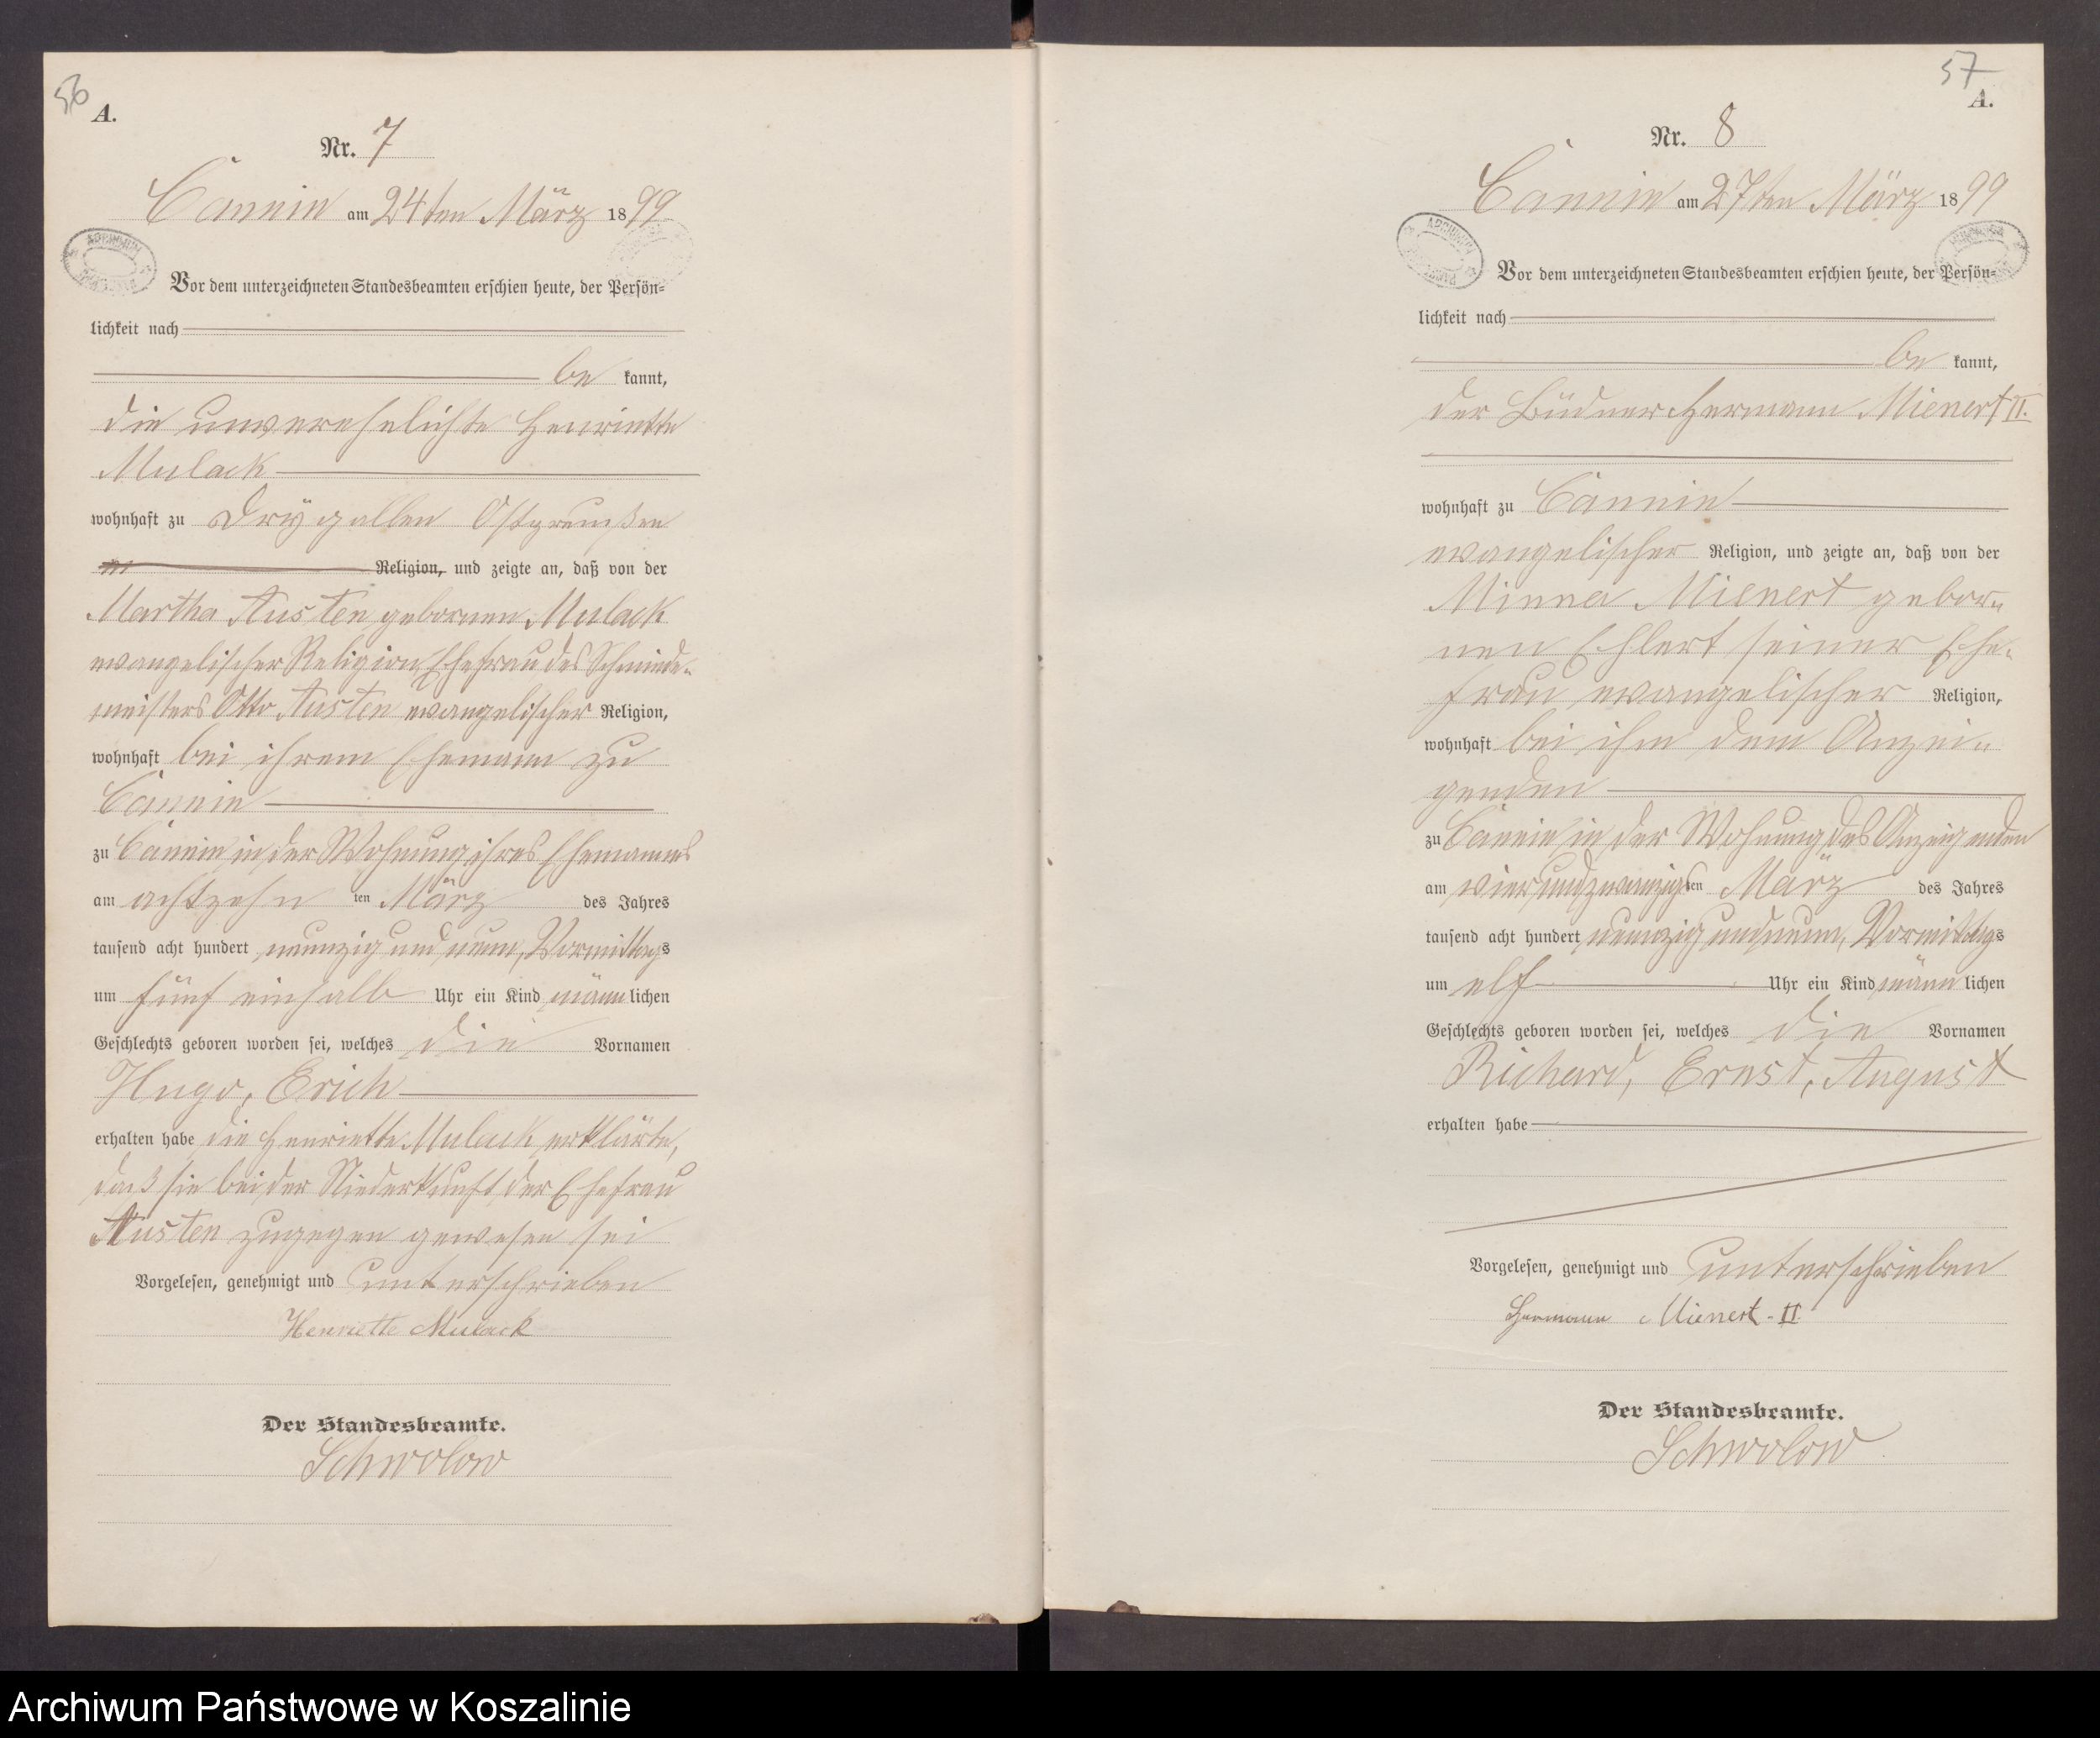 56
A.
Nr. 7
Cannin am 24ten März 1899
Vor dem unterzeichneten Standesbeamten erschien heute, der Persön-
lichkeit nach
be kannt,
die unverehelichte Henriette
Mulack
wohnhaft zu Drygallen Ostpreußen
Religion, und zeigte an, daß von der
Martha Austen gebornen Mulack
evangelischer Religion Ehefrau des Schmiede-
meisters Otto Austen evangelischer Religion,
wohnhaft bei ihrem Ehemann zu
Cannin
zu Cannin in der Wohnung ihres Ehemannes
am achtzehn ten März des Jahres
tausend acht hundert neunzig und neun, Vormittags
um fünf einhalb Uhr ein Kind männlichen
Geschlechts geboren worden sei, welches die Vornamen
Hugo, Erich
erhalten habe die Henriette Mulack erklärte,
daß sie bei der Niederkunft der Ehefrau
Austen zugegen gewesen sei
Vorgelesen, genehmigt und unterschrieben
Henriette Mulack
Der Standesbeamte.
Schwolow
57
A.
Nr. 8
Cannin am 27ten März 1899
Vor dem unterzeichneten Standesbeamten erschien heute, der Persön-
lichkeit nach
be kannt,
der Büdner Hermann Mienert II.
wohnhaft zu Cannin
evangelischer Religion, und zeigte an, daß von der
Minna Mienert gebor-
nen Ehlert seiner Ehe-
frau evangelischer Religion,
wohnhaft bei ihm dem Anzei-
genden
zu Cannin in der Wohnung des Anzeigenden
am vierundzwanzigsten März des Jahres
tausend acht hundert neunzig und neun, Vormittags
um elf Uhr ein Kind männlichen
Geschlechts geboren worden sei, welches die Vornamen
Richard, Ernst, August
erhalten habe
Vorgelesen, genehmigt und unterschrieben
Hermann Mienert - II
Der Standesbeamte.
Schwolow
Archiwum Państwowe w Koszalinie